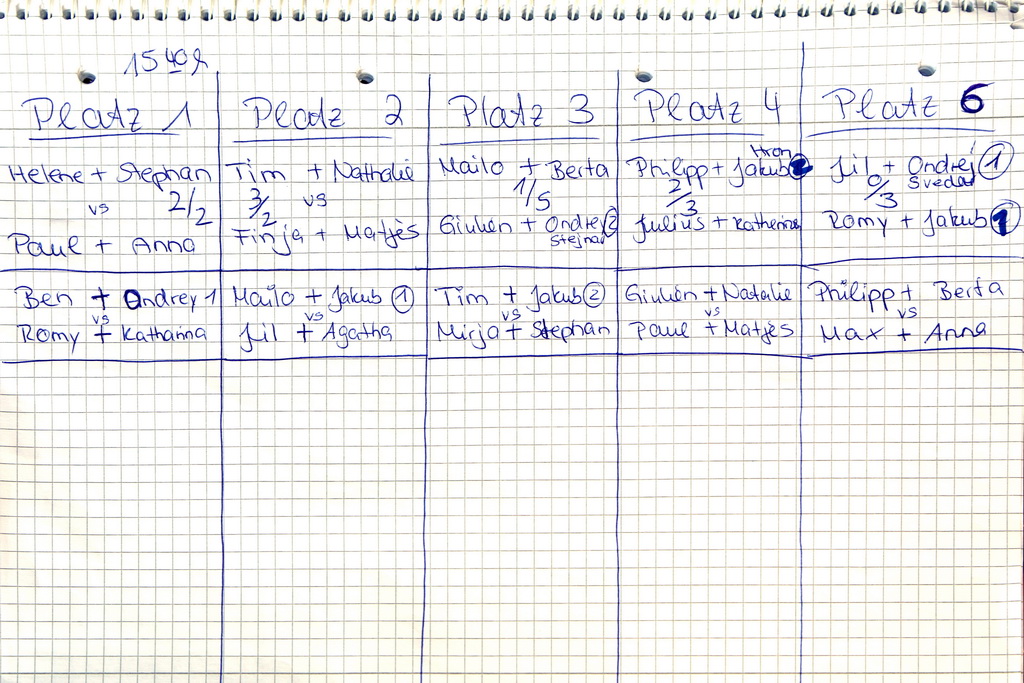 15 40h
Platz 1
Helene + Stephan
vs 2/2
Paul + Anna
Ben + Ondrey 1
vs
Romy + Katharina
Platz 2
Tim + Nathalie
3/2 vs
Finja + Matjès
Mailo + Jakub ①
vs
Jil + Agatha
Platz 3
Mailo + Berta
1/5
Giulien + Ondrej ②
Stejnar
Tim + Jakub ②
vs
Mirja + Stephan
Platz 4
Hron
Philipp + Jakub
2/3
Julius + Katherina
Giulien + Natalie
vs
Paul + Matjès
Platz 6
Jil + Ondrej ①
0/3 Svedar
Romy + Jakub ①
Philipp + Berta
vs
Max + Anna